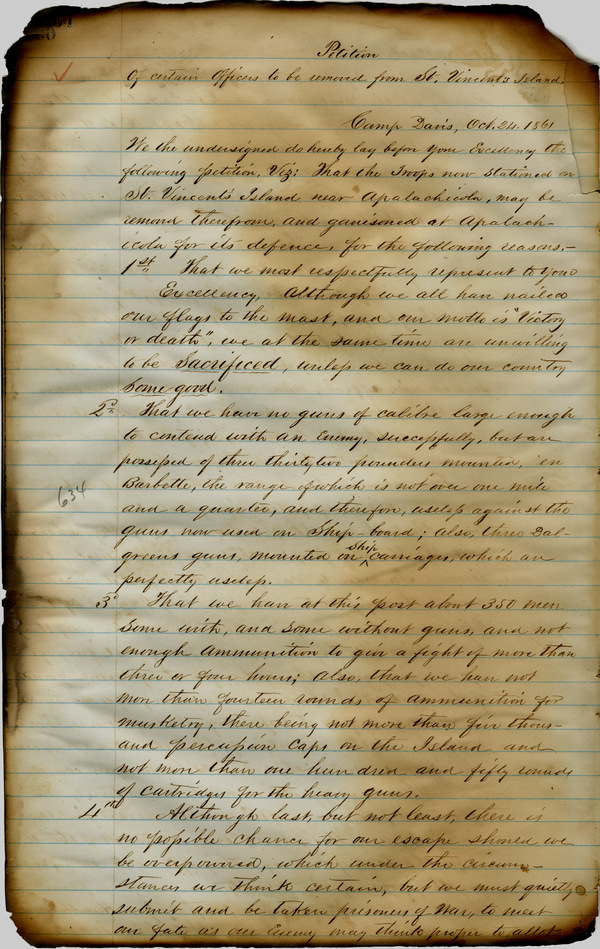 Petition
Of certain Officers to be removed from St. Vincent's Island.
Camp Davis, Oct. 24. 1861
We the undersigned do hereby lay before your Excellency the
following petition, Viz: That the Troops now stationed on
St. Vincent's Island near Apalachicola, may be
removed therefrom, and garrisoned at Apalach-
icola for its defence, for the following reasons,-
1st That we most respectfully represent to your
Excellency, Although we all have nailed
our flags to the mast, and our motto is "Victory
or death", we at the same time are unwilling
to be Sacrificed, unless we can do our country
some good.
2d That we have no guns of calibre large enough
to contend with an Enemy, successfully, but are
possessed of three thirty two pounders mounted, en
Barbette, the range of which is not over one mile
634
and a quarter, and therefore, useless against the
guns now used on Ship-board; also, three Dal-
greens guns, mounted on Ship carriages, which are
perfectly useless.
3d That we have at this post about 350 men
some with, and some without guns, and not
enough ammunition to give a fight of more than
three or four hours; also, that we have not
more than fourteen rounds of ammunition for
musketry, there being not more than five thous-
and percussion caps on the Island and
not more than one hundred and fifty rounds
of cartridges for the heavy guns.
4th Although last, but not least, there is
no possible chance for our escape should we
be overpowered, which under the circum-
stances we think certain, but we must quietly
submit and be taken prisoners of War, to meet
our fate as our Enemy may think proper to allot